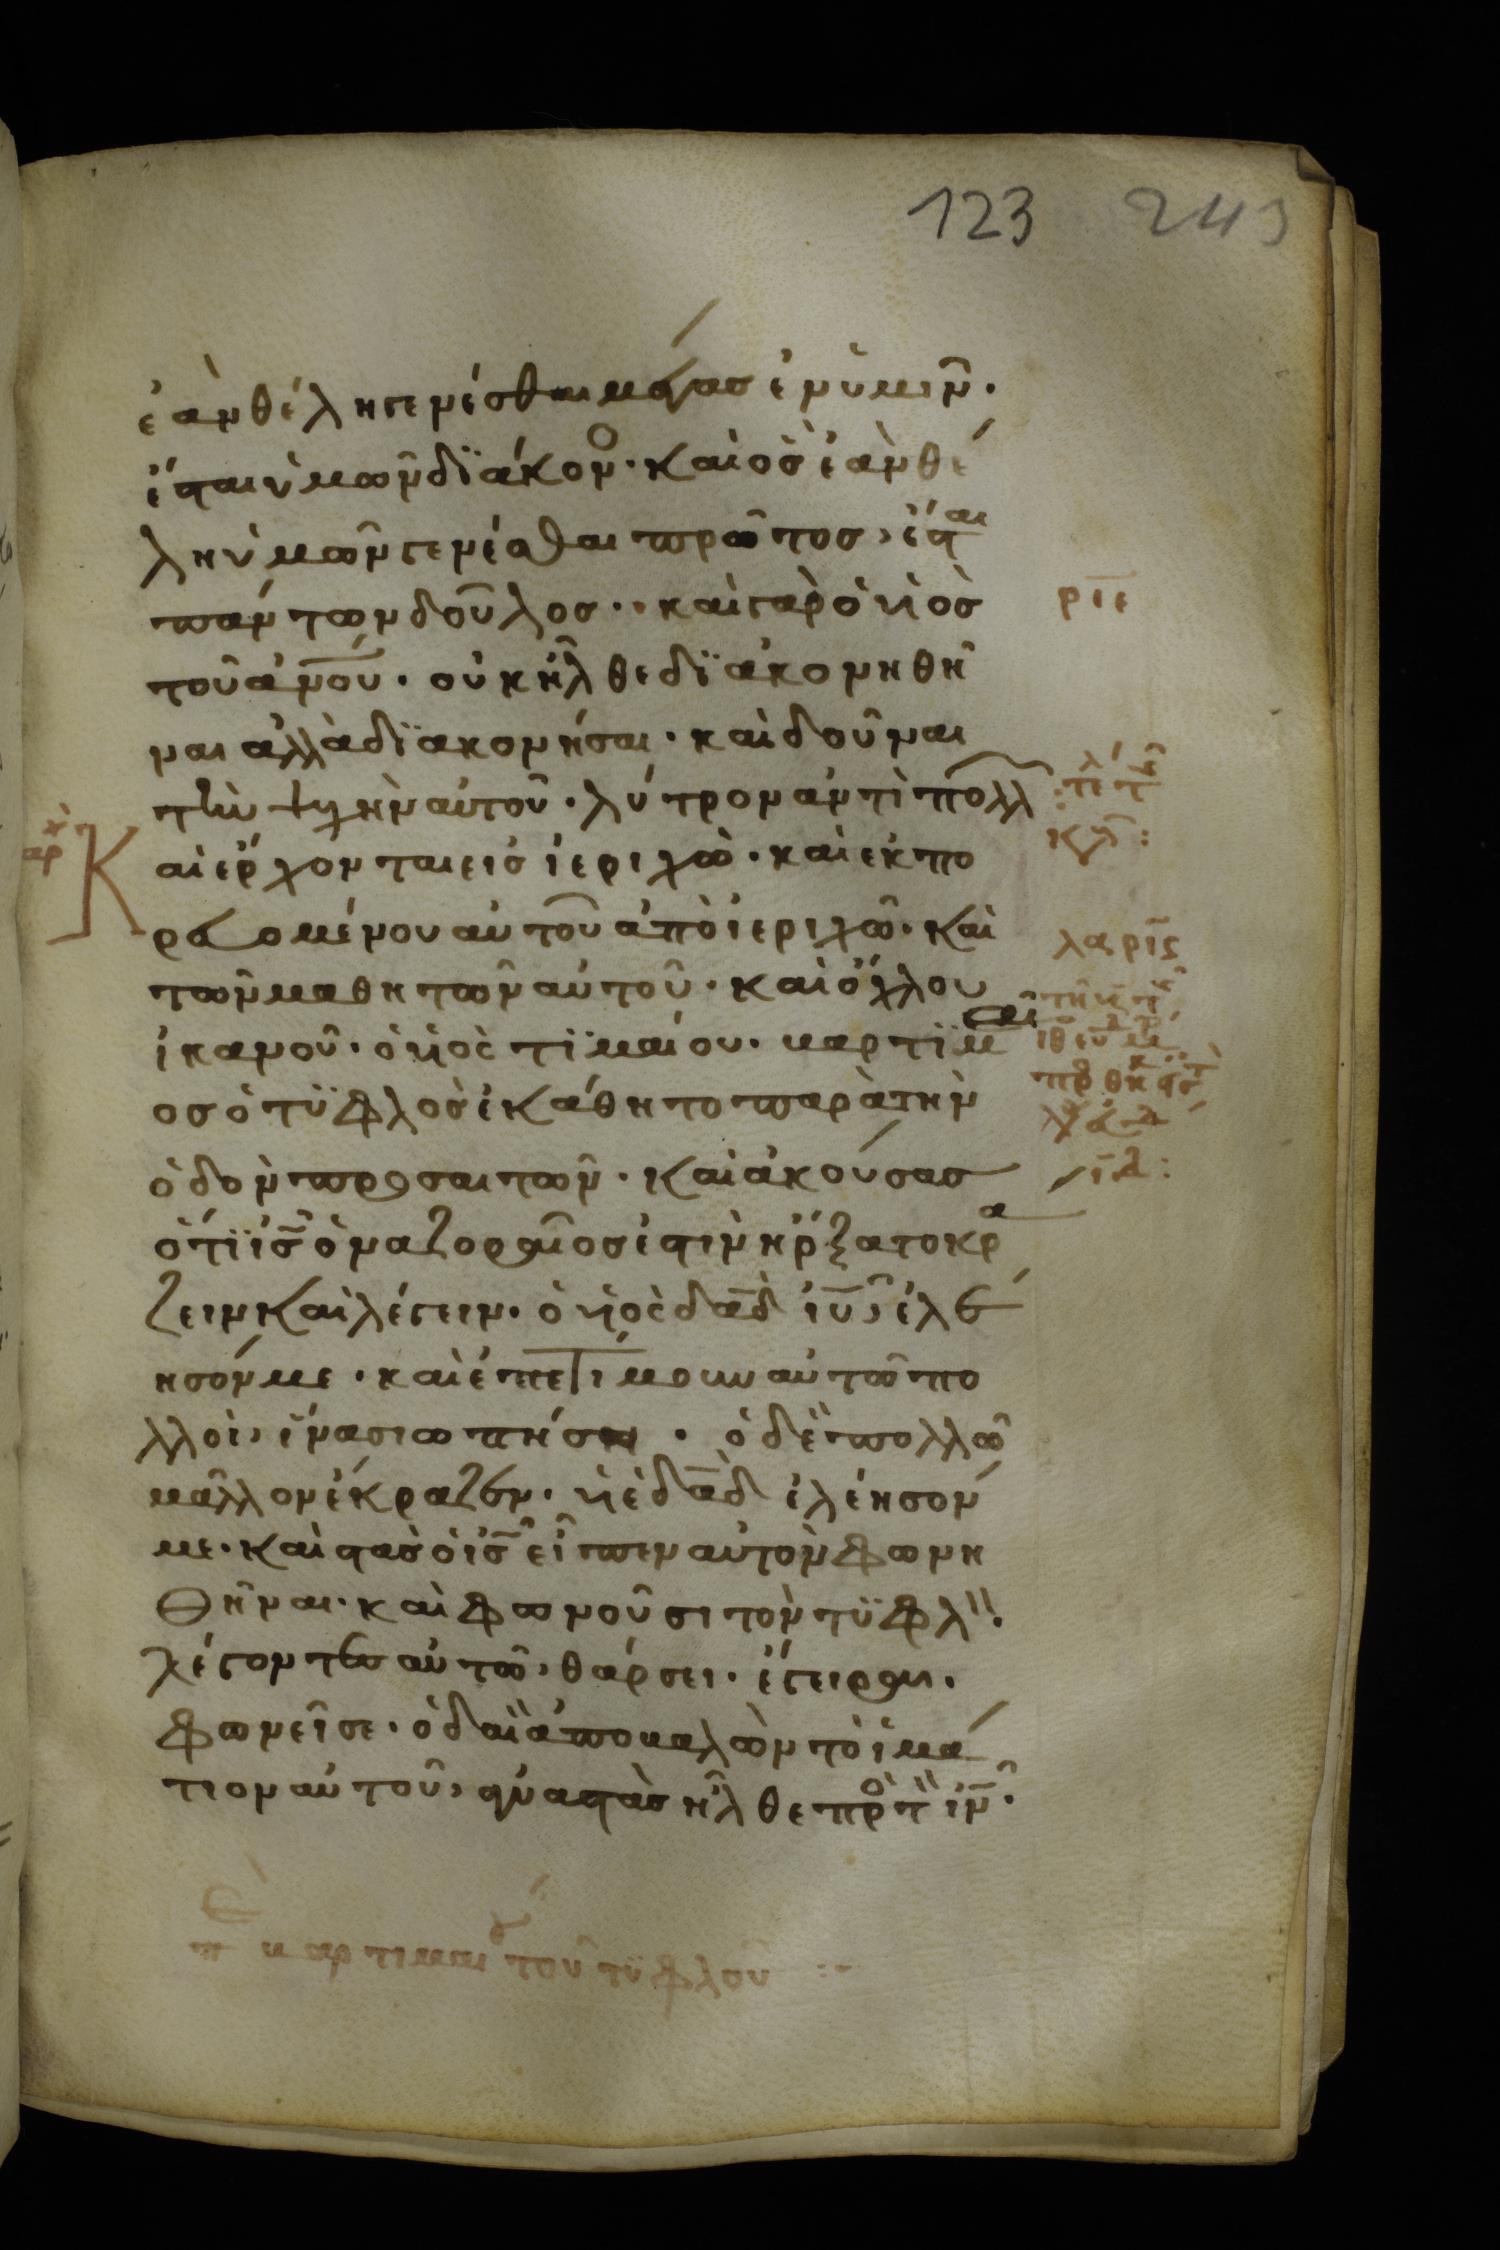 123 243
ἐὰν θέλη γενέσθαι μέγας ἐν ὑμῖν·
ἔσται ὑμῶν διάκον· καὶ ὃς ἐὰν θέ
λη ὑμῶν γενέσθαι πρῶτος, ἔσται
πάντων δοῦλος·· καὶ γὰρ ὁ υἱὸς
ριε
τοῦ ἀνου· οὐκ ἦλθε διακονηθῆ
ναι ἀλλὰ διακονῆσαι· καὶ δοῦναι
τὴν ψυχὴν αὐτοῦ· λύτρον ἀντὶ πολλ
αρχ
Κ
αὶ ἔρχονται εἰς ἱεριχώ· καὶ ἐκπο
ρευομένου αὐτοῦ ἀπὸ ἱεριχῶ· καὶ
τῶν μαθητῶν αὐτοῦ· καὶ ὄχλου
ἱκανοῦ· ὁ υἱὸς τιμαίου· βαρτιμαῖ
ος ὁ τυφλὸς ἐκάθητο παρὰ τὴν
ὁδὸν προσαιτῶν· καὶ ἀκούσας
ὅτι ις ὁ ναζοραῖος ἐστιν ἤρξατο κρά
ζειν καὶ λέγειν· ὁ υἱὸς δαδ ιυ, ἐλέ
ησόν με· καὶ ἐπετίμουν αὐτῶ πο
λλοὶ, ἵνα σιωπήση· ὁ δὲ πολλῶ
μᾶλλον ἔκραζεν· υἱὲ δαδ ἐλέησόν
με· καὶ στὰς ὁ ις εἶπεν αὐτὸν φωνη
θῆναι· καὶ φωνοῦσι τὸν τυφλ·
λέγοντες αὐτῶ, θάρσει· ἔγειραι·
φωνεῖ σε· ὁ δὲ ἀποβαλὼν τὸ ἱμά
τιον αὐτοῦ, ἀναστὰς ἦλθε πρὸς τὸν ιν·
βαρτιμαίου τοῦ τυφλοῦ :-